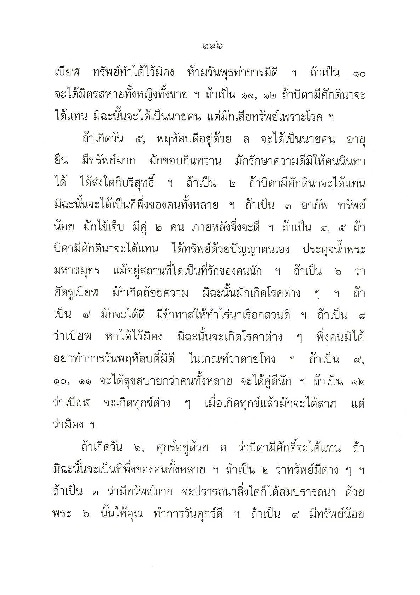 ๒๙๖
เบียฬ ทรัพย์ทำได้ไว้มิคง ห้ามวันพุธทำการมิดี ฯ ถ้าเป็น ๑๐
จะได้มิตรสหายทั้งหญิงทั้งชาย ฯ ถ้าเป็น ๑๑, ๑๒ ถ้าบิดามีศักดินาจะ
ได้แทน มิฉะนั้นจะได้เป็นนายคน แต่มักเสียทรัพย์เพราะโรค ฯ
ถ้าเกิดวัน ๕, พฤหัสบดีอยู่ด้วย ล จะได้เป็นนายคน อายุ
ยืน มีทรัพย์มาก มักชอบกินหวาน มักรักษาความดีมิให้คนนินทา
ได้ ได้ส่งใดก็บริสุทธิ์ ฯ ถ้าเป็น ๒ ถ้าบิดามีศักดินาจะได้แทน
มิฉะนั้นจะได้เป็นที่พึ่งของคนทั้งหลาย ฯ ถ้าเป็น ๓ อาภัพ ทรัพย์
น้อย มักไข้เจ็บ มีคู่ ๒ คน ภายหลังจึ่งจะดี ฯ ถ้าเป็น ๔, ๕ ถ้า
บิดามีศักดินาจะได้แทน ได้ทรัพย์ด้วยปัญญาตนเอง ประดุจน้ำพระ
มหาสมุทร แม้อยู่สถานที่ใดเป็นที่รักของคนนัก ฯ ถ้าเป็น ๖ ว่า
ศัตรูเบียฬ มักเกิดถ้อยความ มิฉะนั้นมักเกิดโรคต่าง ๆ ฯ ถ้า
เป็น ๗ มักจะได้ดี มีข้าทาสให้ทำไร่นาเรือกสวนดี ฯ ถ้าเป็น ๘
ว่าเบียฬ หาได้ไว้มิคง มิฉะนั้นจะเกิดโรคาต่าง ๆ พึ่งคนมิได้
อย่าทำการวันพฤหัสบดีมิดี ในเกณฑ์ว่าตายโหง ฯ ถ้าเป็น ๙,
๑๐, ๑๑ จะได้สุขสบายกว่าคนทั้งหลาย จะได้คู่ดีนัก ฯ ถ้าเป็น ๑๒
ว่าเบียฬ จะเกิดทุกข์ต่าง ๆ เมื่อเกิดทุกข์แล้วมักจะได้ลาภ แต่
ว่ามิคง ฯ
ถ้าเกิดวัน ๖, ศุกร์อยู่ด้วย ล ว่าบิดามีศักดิ์จะได้แทน ถ้า
มิฉะนั้นจะเป็นที่พึ่งของคนทั้งหลาย ฯ ถ้าเป็น ๒ ว่าทรัพย์มีต่าง ๆ ฯ
ถ้าเป็น ๓ ว่ามีทรัพย์มาก จะปรารถนาสิ่งใดก็ได้สมปรารถนา ด้วย
พระ ๖ นั้นให้คุณ ทำการวันศุกร์ดี ฯ ถ้าเป็น ๔ มีทรัพย์น้อย